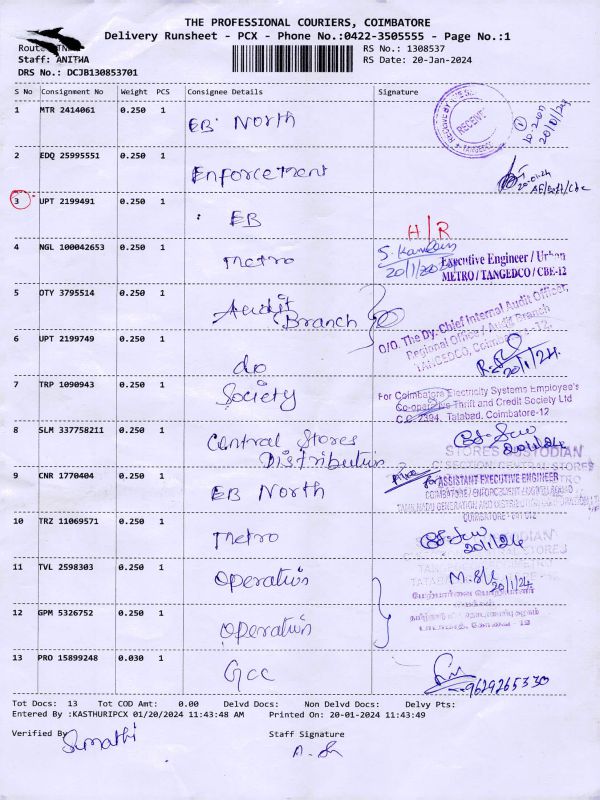 THE PROFESSIONAL COURIERS, COIMBATORE
Delivery Runsheet - PCX - Phone No.:0422-3505555 - Page No.:1
Staff: ANITHA
DRS No.: DCJB130853701
RS No.: 1308537
RS Date: 20-Jan-2024
S No Consignment No Weight PCS Consignee Details Signature
1 MTR 2414061 0.250 1 EB North
20/01/24
2 EDQ 25995551 0.250 1 Enforcement
20-01-24
3 UPT 2199491 0.250 1 EB
H/R
4 NGL 100042653 0.250 1 Metro
Executive Engineer / Urban
METRO / TANGEDCO / CBE-12
5 OTY 3795514 0.250 1 Audit Branch
O/O. The Dy. Chief Internal Audit Officer,
Regional Office / Audit Branch
TANGEDCO, Coimbatore-12.
6 UPT 2199749 0.250 1 do
20/1/24.
7 TRP 1090943 0.250 1 Society
For Coimbatore Electricity Systems Employee's
Co-operative Thrift and Credit Society Ltd
C.C.2394, Tatabad, Coimbatore-12
8 SLM 337758211 0.250 1 Central Stores Distribution
20/1/24
STORES CUSTODIAN
9 CNR 1770404 0.250 1 EB North
ASSISTANT EXECUTIVE ENGINEER
10 TRZ 11069571 0.250 1 Metro
20/1/24
11 TVL 2598303 0.250 1 Operation
20/1/24.
12 GPM 5326752 0.250 1 Operation
13 PRO 15899248 0.030 1 Gcc
9629265330
Tot Docs: 13 Tot COD Amt: 0.00 Delvd Docs: Non Delvd Docs: Delvy Pts:
Entered By :KASTHURIPCX 01/20/2024 11:43:48 AM Printed On: 20-01-2024 11:43:49
Verified By Staff Signature
Sumathi